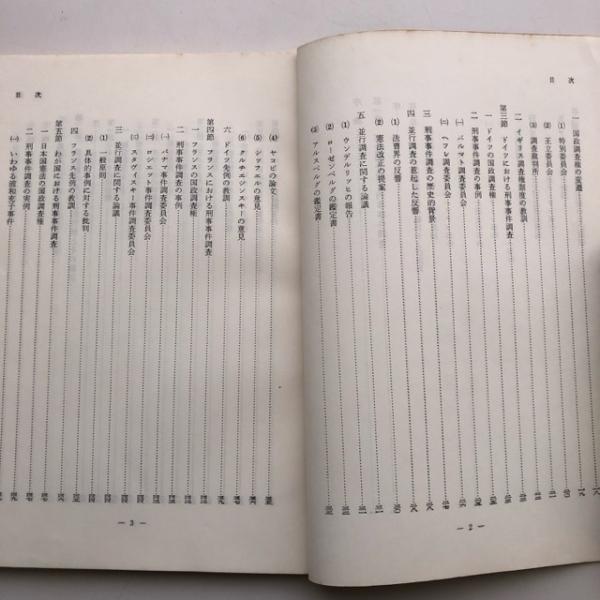 目次
一 国政調査権の変遷
(1) 特別委員会
(2) 王立委員会
(3) 調査裁判所
二 イギリス調査権制度の教訓
第三節 ドイツにおける刑事事件調査
一 ドイツの国政調査権
二 刑事事件調査の事例
(一) バルマト調査委員会
(二) ヘフレ調査委員会
三 刑事事件調査の歴史的背景
四 並行調査の惹起した反響
(1) 法曹界の反響
(2) 憲法改正の提案
五 並行調査に関する論議
(1) ウンデルリッヒの報告
(2) ローゼンベルグの鑑定書
(3) アルスベルグの鑑定書
— 2 —
目次
(4) ヤコビの論文
(5) シッフェルの意見
(6) クルチエジンスキーの意見
六 ドイツ先例の教訓
第四節 フランスにおける刑事事件調査
一 フランスの国政調査権
二 刑事事件調査の事例
(一) パナマ事件調査委員会
(二) ロシェット事件調査委員会
(三) スタヴィスキー事件調査委員会
三 並行調査に関する論議
(1) 一般原則
(2) 具体的事例に対する批判
四 フランス先例の教訓
第五節 わが国における刑事事件調査
一 日本国憲法の国政調査権
二 刑事事件調査の実例
(一) いわゆる浦和充子事件
— 3 —